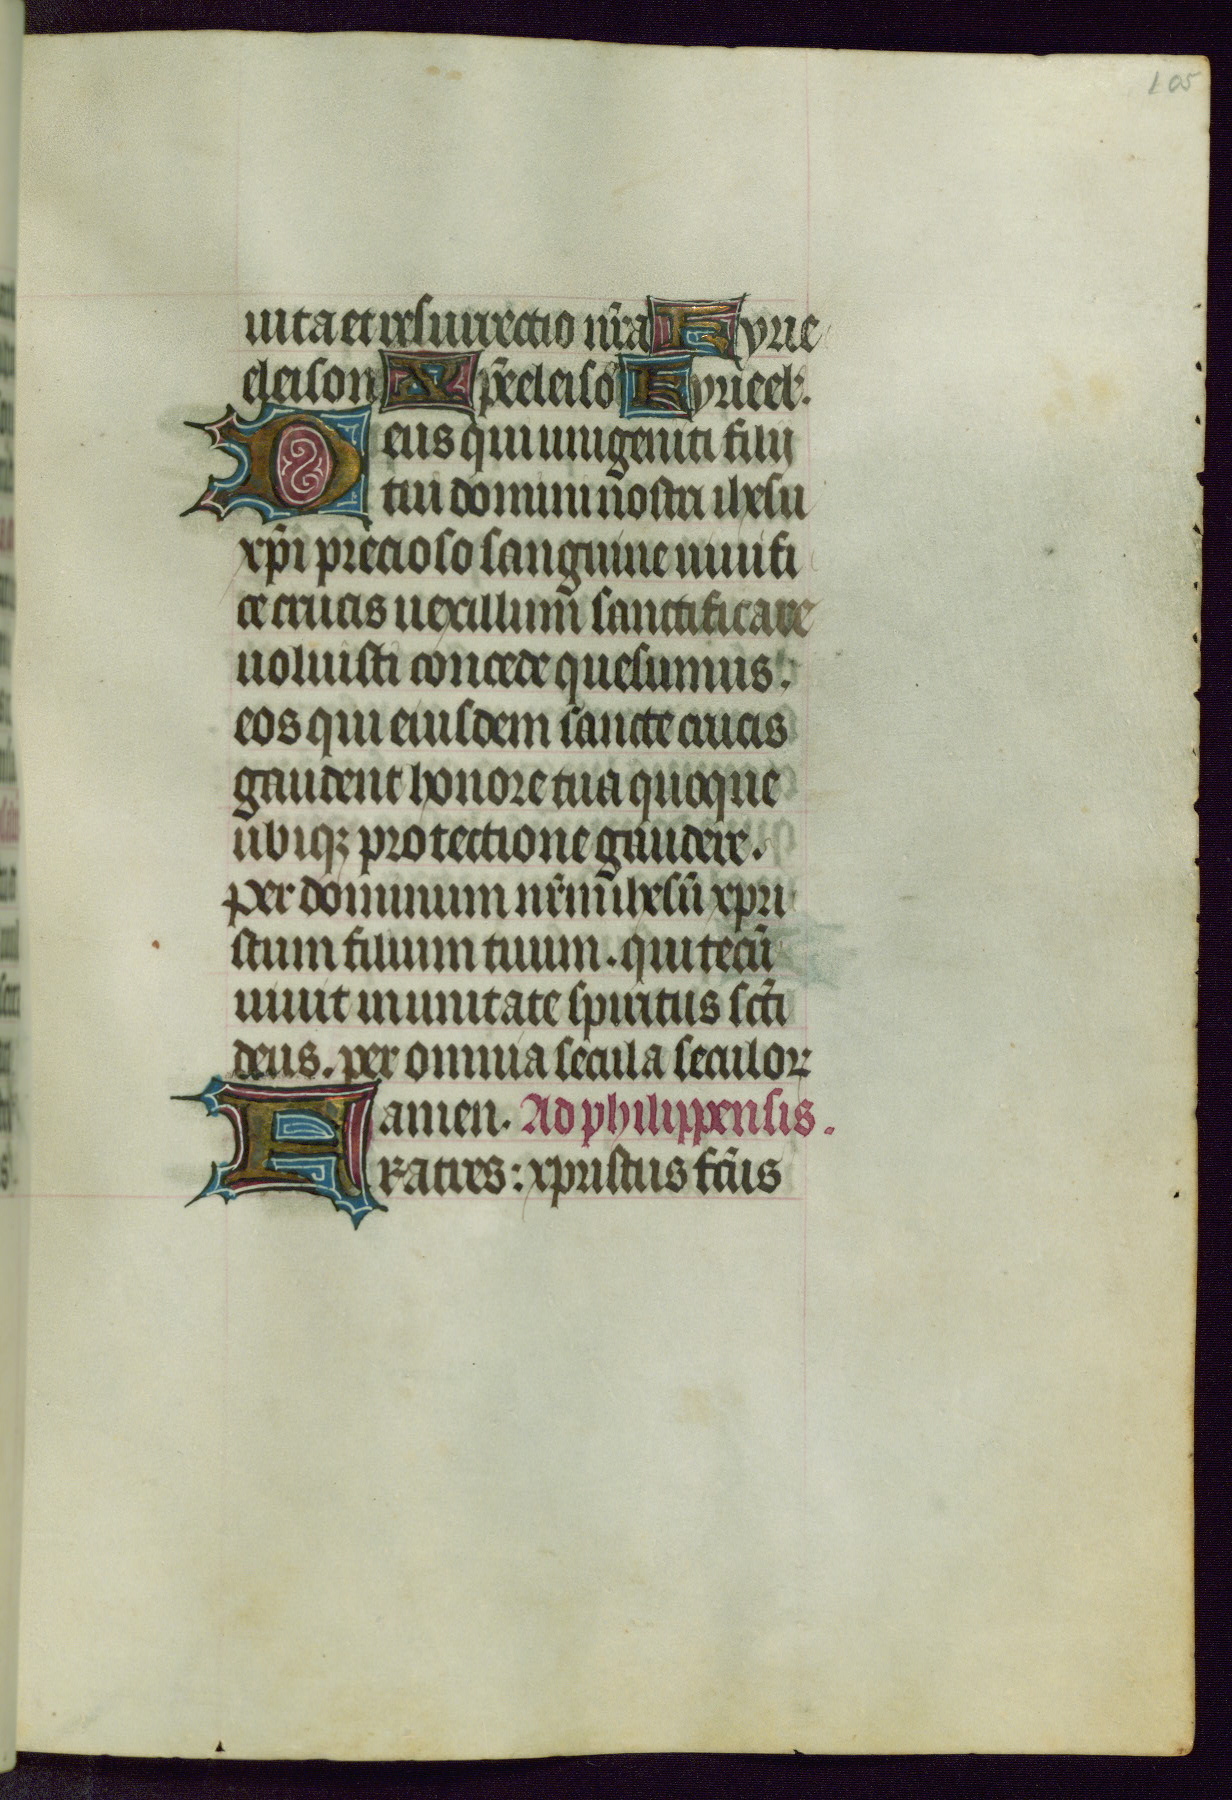 105
uita et resurrectio nr̃a Kyrie
eleison Xp̃eeleisõ Kyrieel'.
Deus qui unigeniti filii
tui domini nostri ihesu
xp̃i precioso sanguine uiuifi
ce crucis uexillum̃ sanctificare
uoluisti concede quesumus:
eos qui eiusdem sancte crucis
gaudent honore tua quoque
ubiqꝫ protectione gaudere.
per dominum nr̃m̃ ihesũ xpri
stum filium tuum. qui tecũ
uiuit in unitate spiritus sc̃ti
deus. per omnia secula seculoꝝ
amen. Ad philippensis.
Fratres: xpristus fc̃us